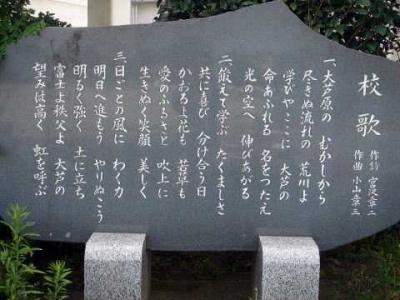 校歌
作詞 宮沢章二
作曲 小山章三
一、大芦原の むかしから
尽きぬ流れの 荒川よ
学びやここに 大芦の
命あふれる 名をつたえ
光の空へ 伸びあがる
二、鍛えて学ぶ たくましさ
共に喜び 分け合う日
かおるよ花も 若草も
愛のふるさと 吹上に
生きぬく笑顔 美しく
三、日ごとの風に わく力
明日へ進もう やりぬこう
明るく強く 土に立ち
富士よ秩父よ 大芦の
望みは高く 虹を呼ぶ